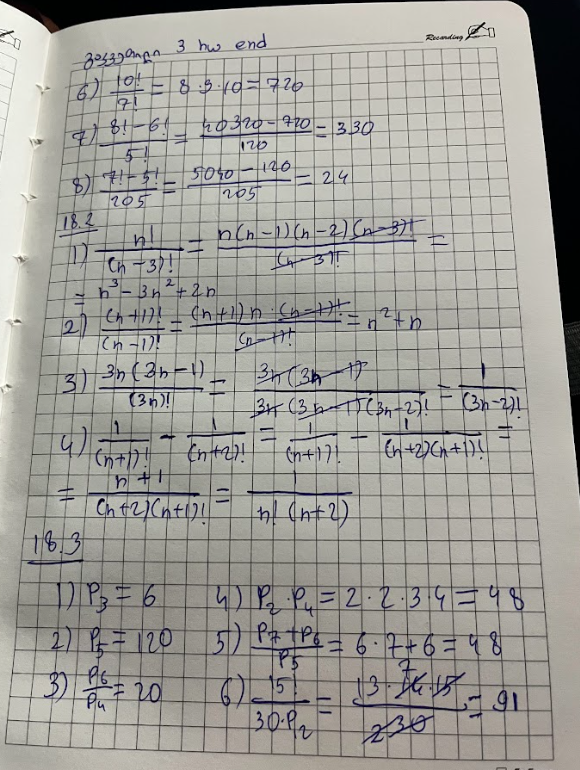 Recording
3 hw end
6) 10!/7! = 8·9·10 = 720
7) (8!-6!)/5! = (40320-720)/120 = 330
8) (7!-5!)/205 = (5040-120)/205 = 24
18.2
1) n!/(n-3)! = n(n-1)(n-2)(n-3)!/(n-3)! =
= n³-3n²+2n
2) (n+1)!/(n-1)! = (n+1)n·(n-1)!/(n-1)! = n²+n
3) 3n(3n-1)/(3n)! = 3n(3n-1)/3n(3n-1)(3n-2)! = 1/(3n-2)!
4) 1/(n+1)! - 1/(n+2)! = 1/(n+1)! - 1/(n+2)(n+1)! =
= n+1/(n+2)(n+1)! = 1/n!(n+2)
18.3
1) P₃ = 6 4) P₂·P₄ = 2·2·3·4 = 48
2) P₅ = 120 5) (P₇+P₆)/P₅ = 6·7+6 = 48
3) P₆/P₄ = 20 6) 15!/30·P₁₂ = 13·14·15/230 = 91
7